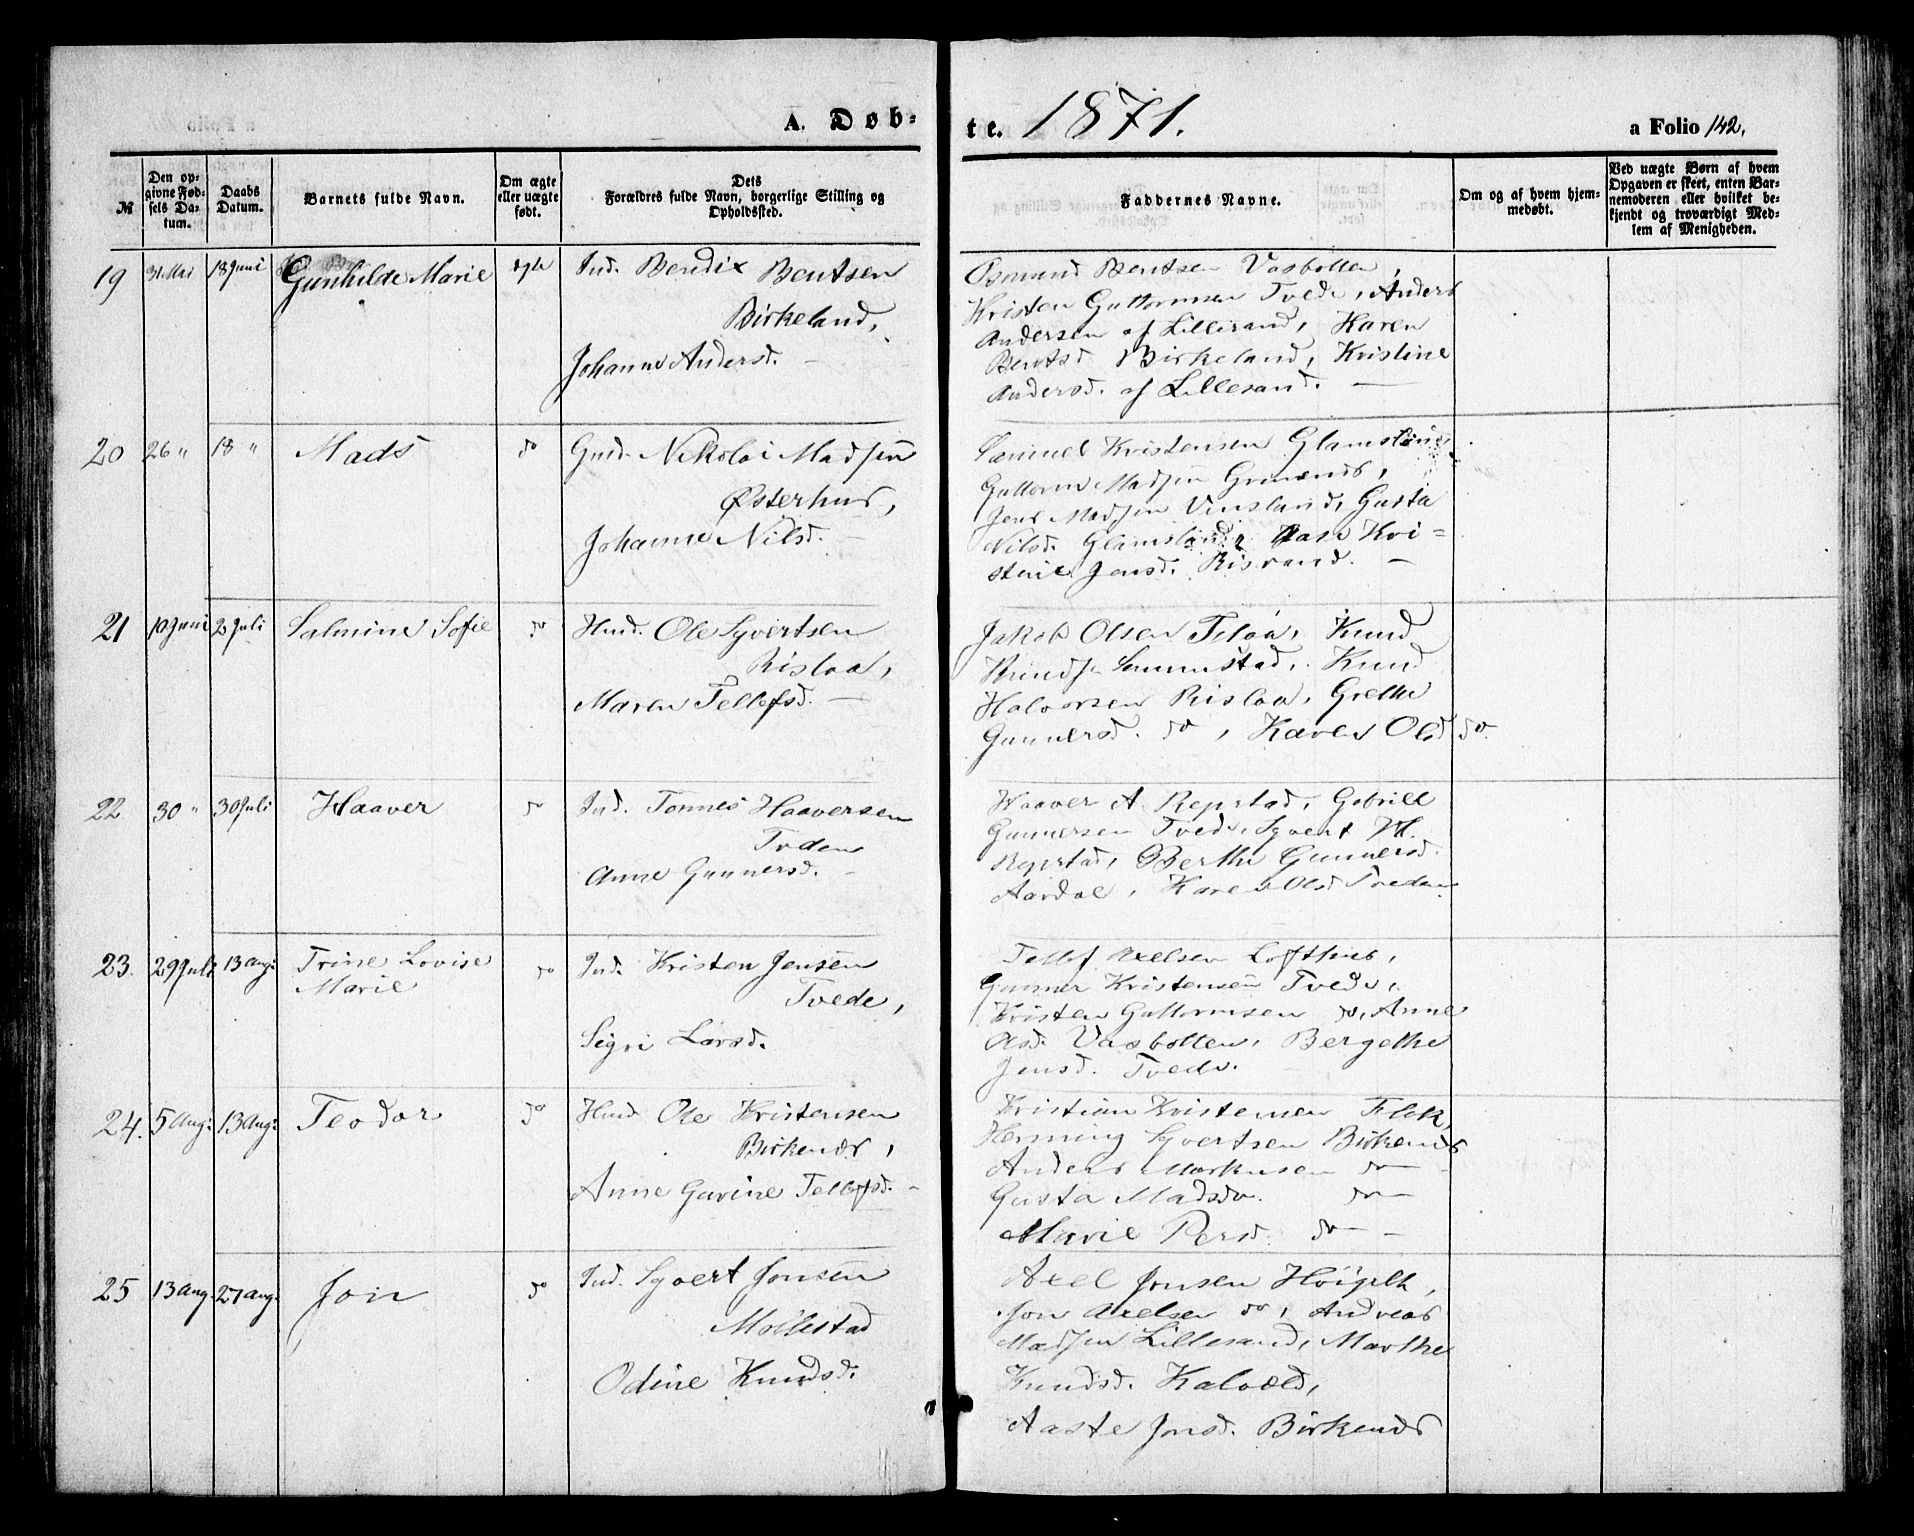 A. Døb-
te. 1871.
a Folio 142.
№
Den op-
givne Fød-
sels Da-
tum.
Daabs
Datum.
Barnets fulde Navn.
Om ægte
eller uægte
født.
Dets
Forældres fulde Navn, borgerlige Stilling og
Opholdssted.
Faddernes Navne.
Om og af hvem hjem-
medøbt.
Ved uægte Børn af hvem
Opgaven er skeet, enten Bar-
nemoderen eller hvilket be-
kjendt og troværdigt Med-
lem af Menigheden.
19 31 Mai 18 Juni Gunhilde Marie ægte Ind. Bendix Bentsen
Birkeland,
Johanne Andersd. —
Osmund Bentsen Vasbotten,
Kristen Guttormsen Tvede, Anders
Andersen af Lillesand, Karen
Bentsd. Birkeland, Kristine
Andersd. af Lillesand. —
20 26 " 18 " Mads do Gmd. Nikolai Madsen
Østerhus,
Johanne Nilsd. —
Samuel Kristensen Glamsland
Guttorm Madsen Grimenes,
Jens Madsen Vinsland, Gusta
Nilsd. Glamsland, Aase Kri-
stine Jensd. Risvand. —
21 10 Juni 2 Juli Salmine Sofie do Husd. Ole Syvertsen
Risloa,
Maren Tellefsd. —
Jakob Olsen Teloa, Knud
Knuds. Sammestad, Knud
Halvorsen Risloa, Grethe
Gunnersd. do, Karen Olsd do.
22 30 " 30 Juli Haaver do Ind. Tønnes Haaversen
Tveden
Anne Gunnersd. —
Haaver A Repstad, Gabriel
Gunnersen Tvede, Syvert H.
Repstad, Berthe Gunnersd.
Aardal, Karen Olsd Tveden
23. 29 Juli 13 Aug: Trine Lovise
Marie
do Ind. Kristen Jensen
Tvede,
Sigri Larsd.
Tellef Axelsen Lofthus,
Gunner Kristensen Tvede,
Kristen Guttormsen do, Anne
Olsd. Vasbotten, Bergethe
Jensd. Tvede.
24. 5 Aug: 13 Aug: Teodor do Husd Ole Kristensen
Birkenes,
Anne Gurine Tellefsd. —
Kristian Kristensen Flak,
Henning Syvertsen Birkenes
Anders Markusen do —
Gusta Madsdr. do —
Marie Persd. do — —
25 13 Aug. 27 Aug. Jon do Ind. Syvert Jonsen
Mollestad
Odine Knudsd.
Axel Jonsen Høigilt,
Jon Axelsen do, Andreas
Madsen Lillesand, Marthe
Knudsd. Kalvold,
Aaste Jonsd. Birkenes